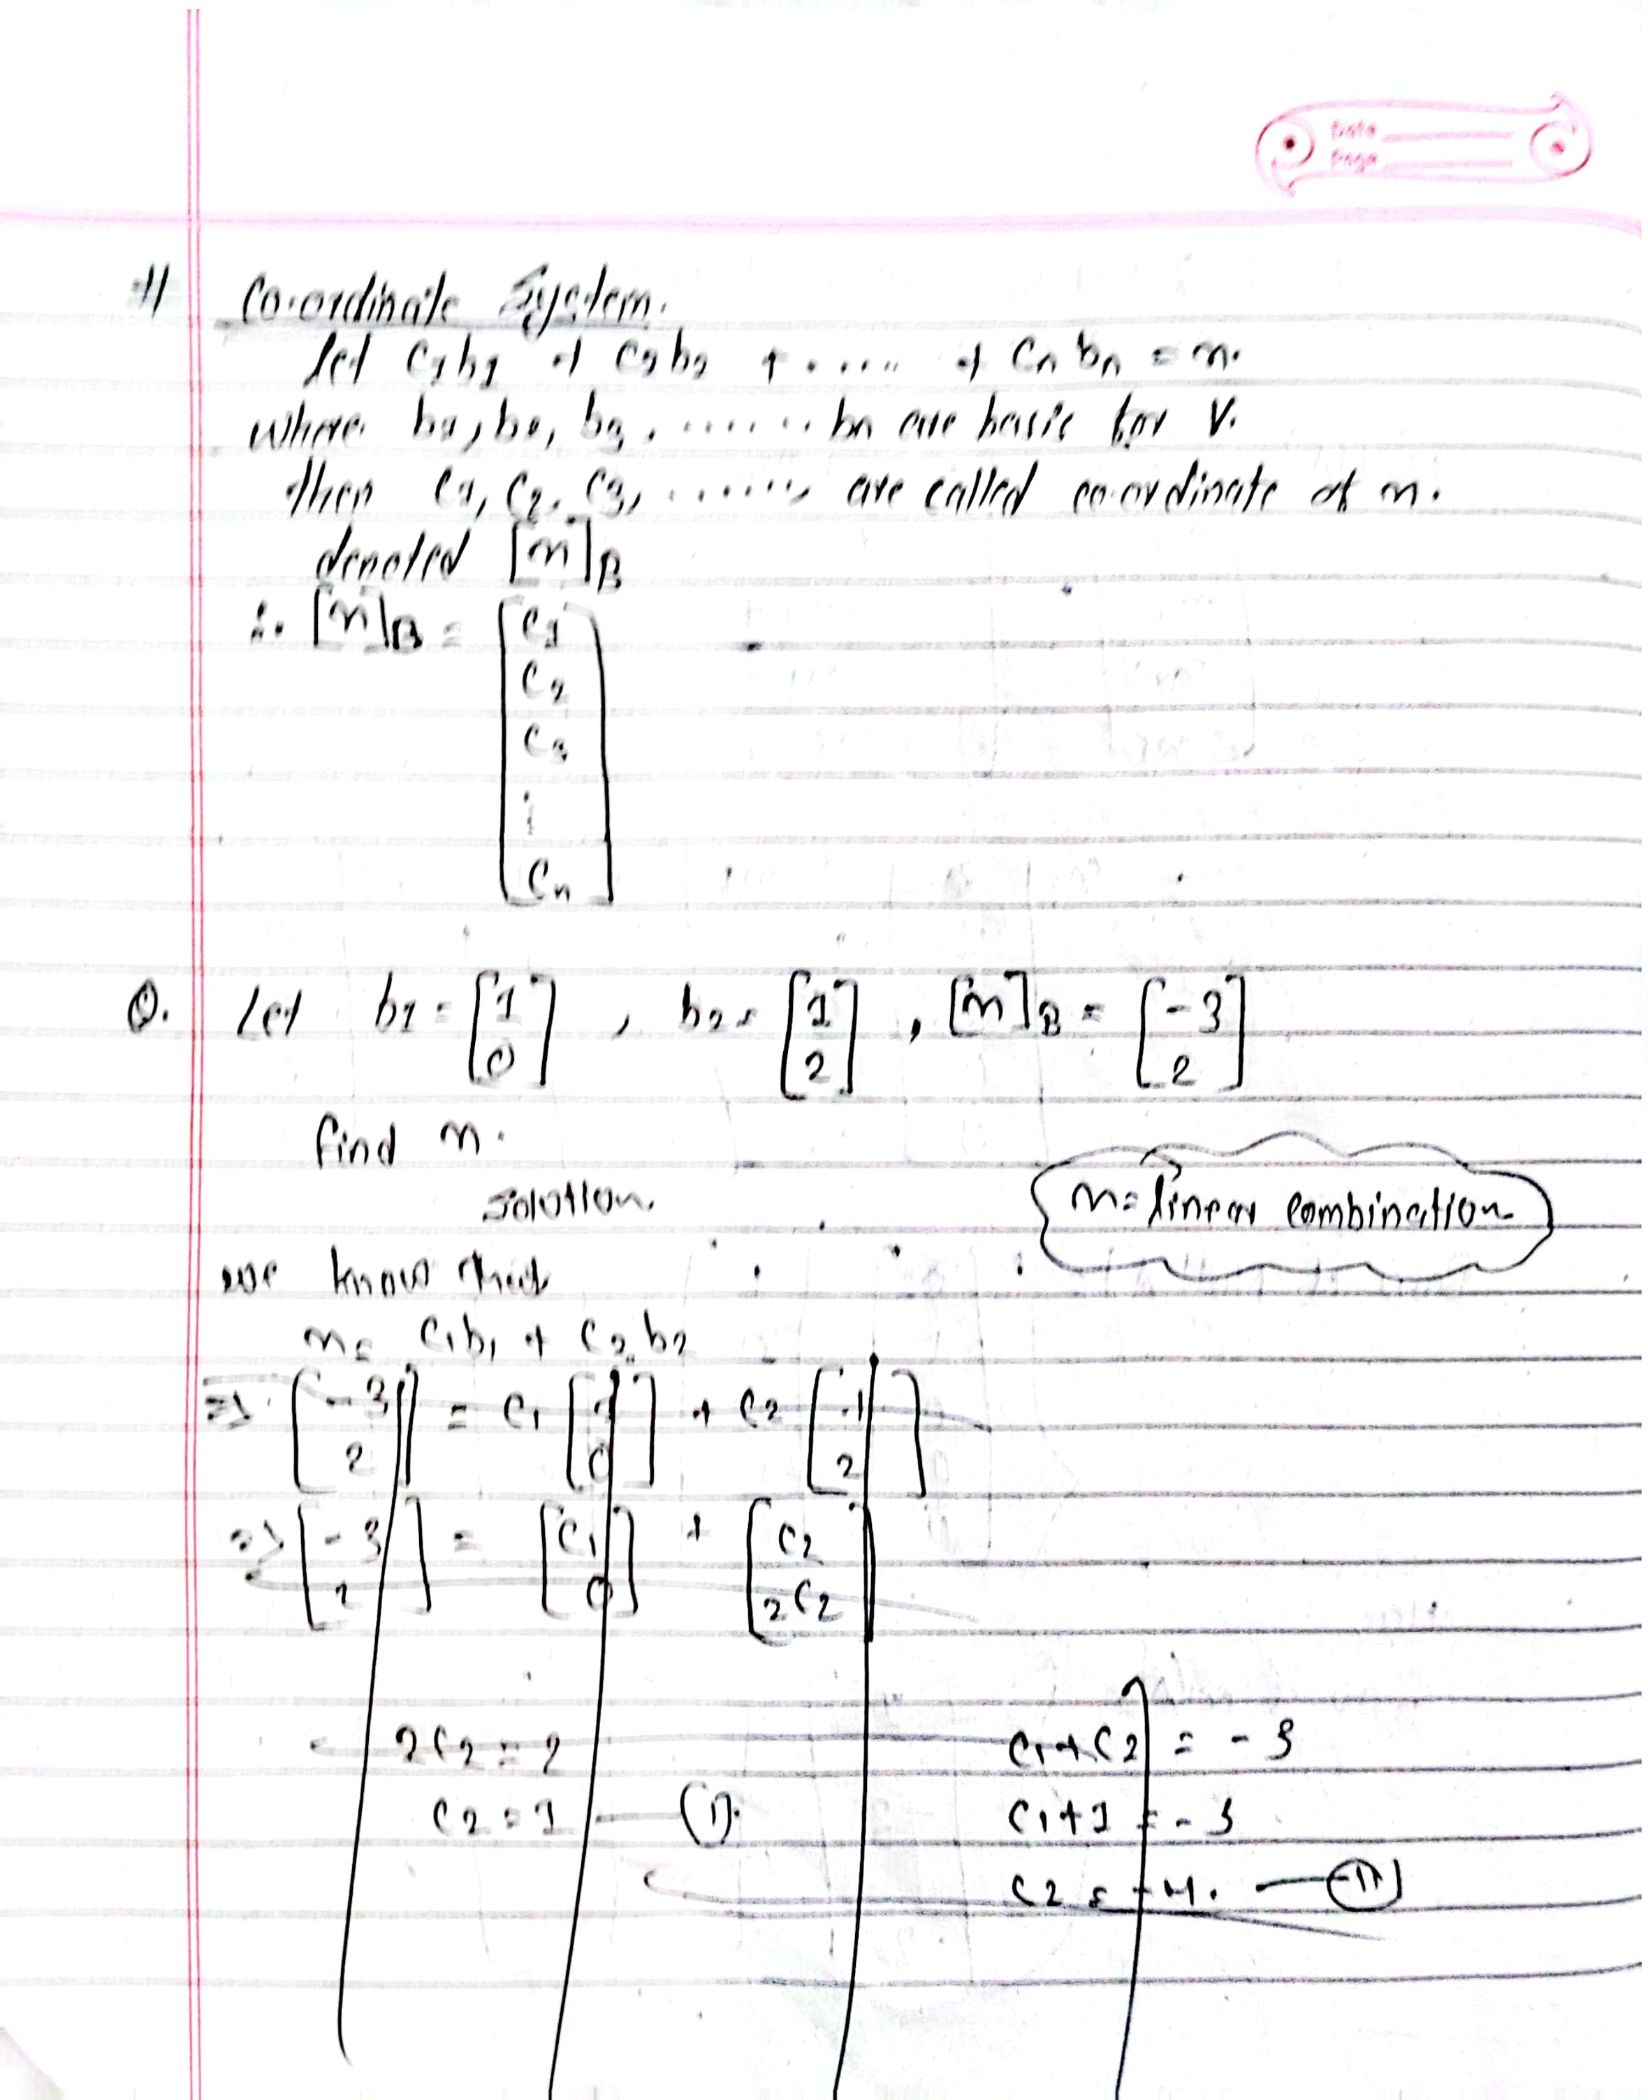 Date
Page
# Co-ordinate System.
Let c1b1 + c2b2 + ..... + cnbn = n.
where b1, b2, b3, ...... bn are basis for V.
then c1, c2, c3, ......, are called co-ordinate of n.
denoted [n]B
∴ [n]B = [c1
c2
c3
⋮
cn]
Q. Let b1 = [1 0], b2 = [1 2], [n]B = [-3 2]
find n.
solution.
n = linear combination
we know that
n = c1b1 + c2b2
=> [-3 2] = c1 [1 0] + c2 [1 2]
=> [-3 2] = [c1 0] + [c2 2c2]
2c2 = 2
c1+c2 = -3
c2 = 1 — (I).
c1+1 = -3
c2 = -4. — (II)